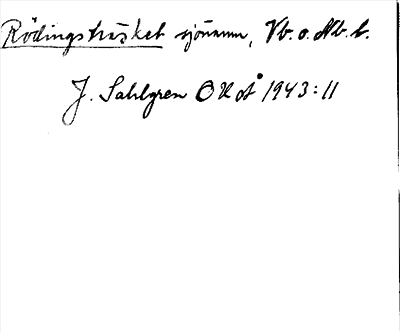 Rödingsträsket sjönamn, Vb. o. Nb. l.
J. Sahlgren OUÅ 1943:11